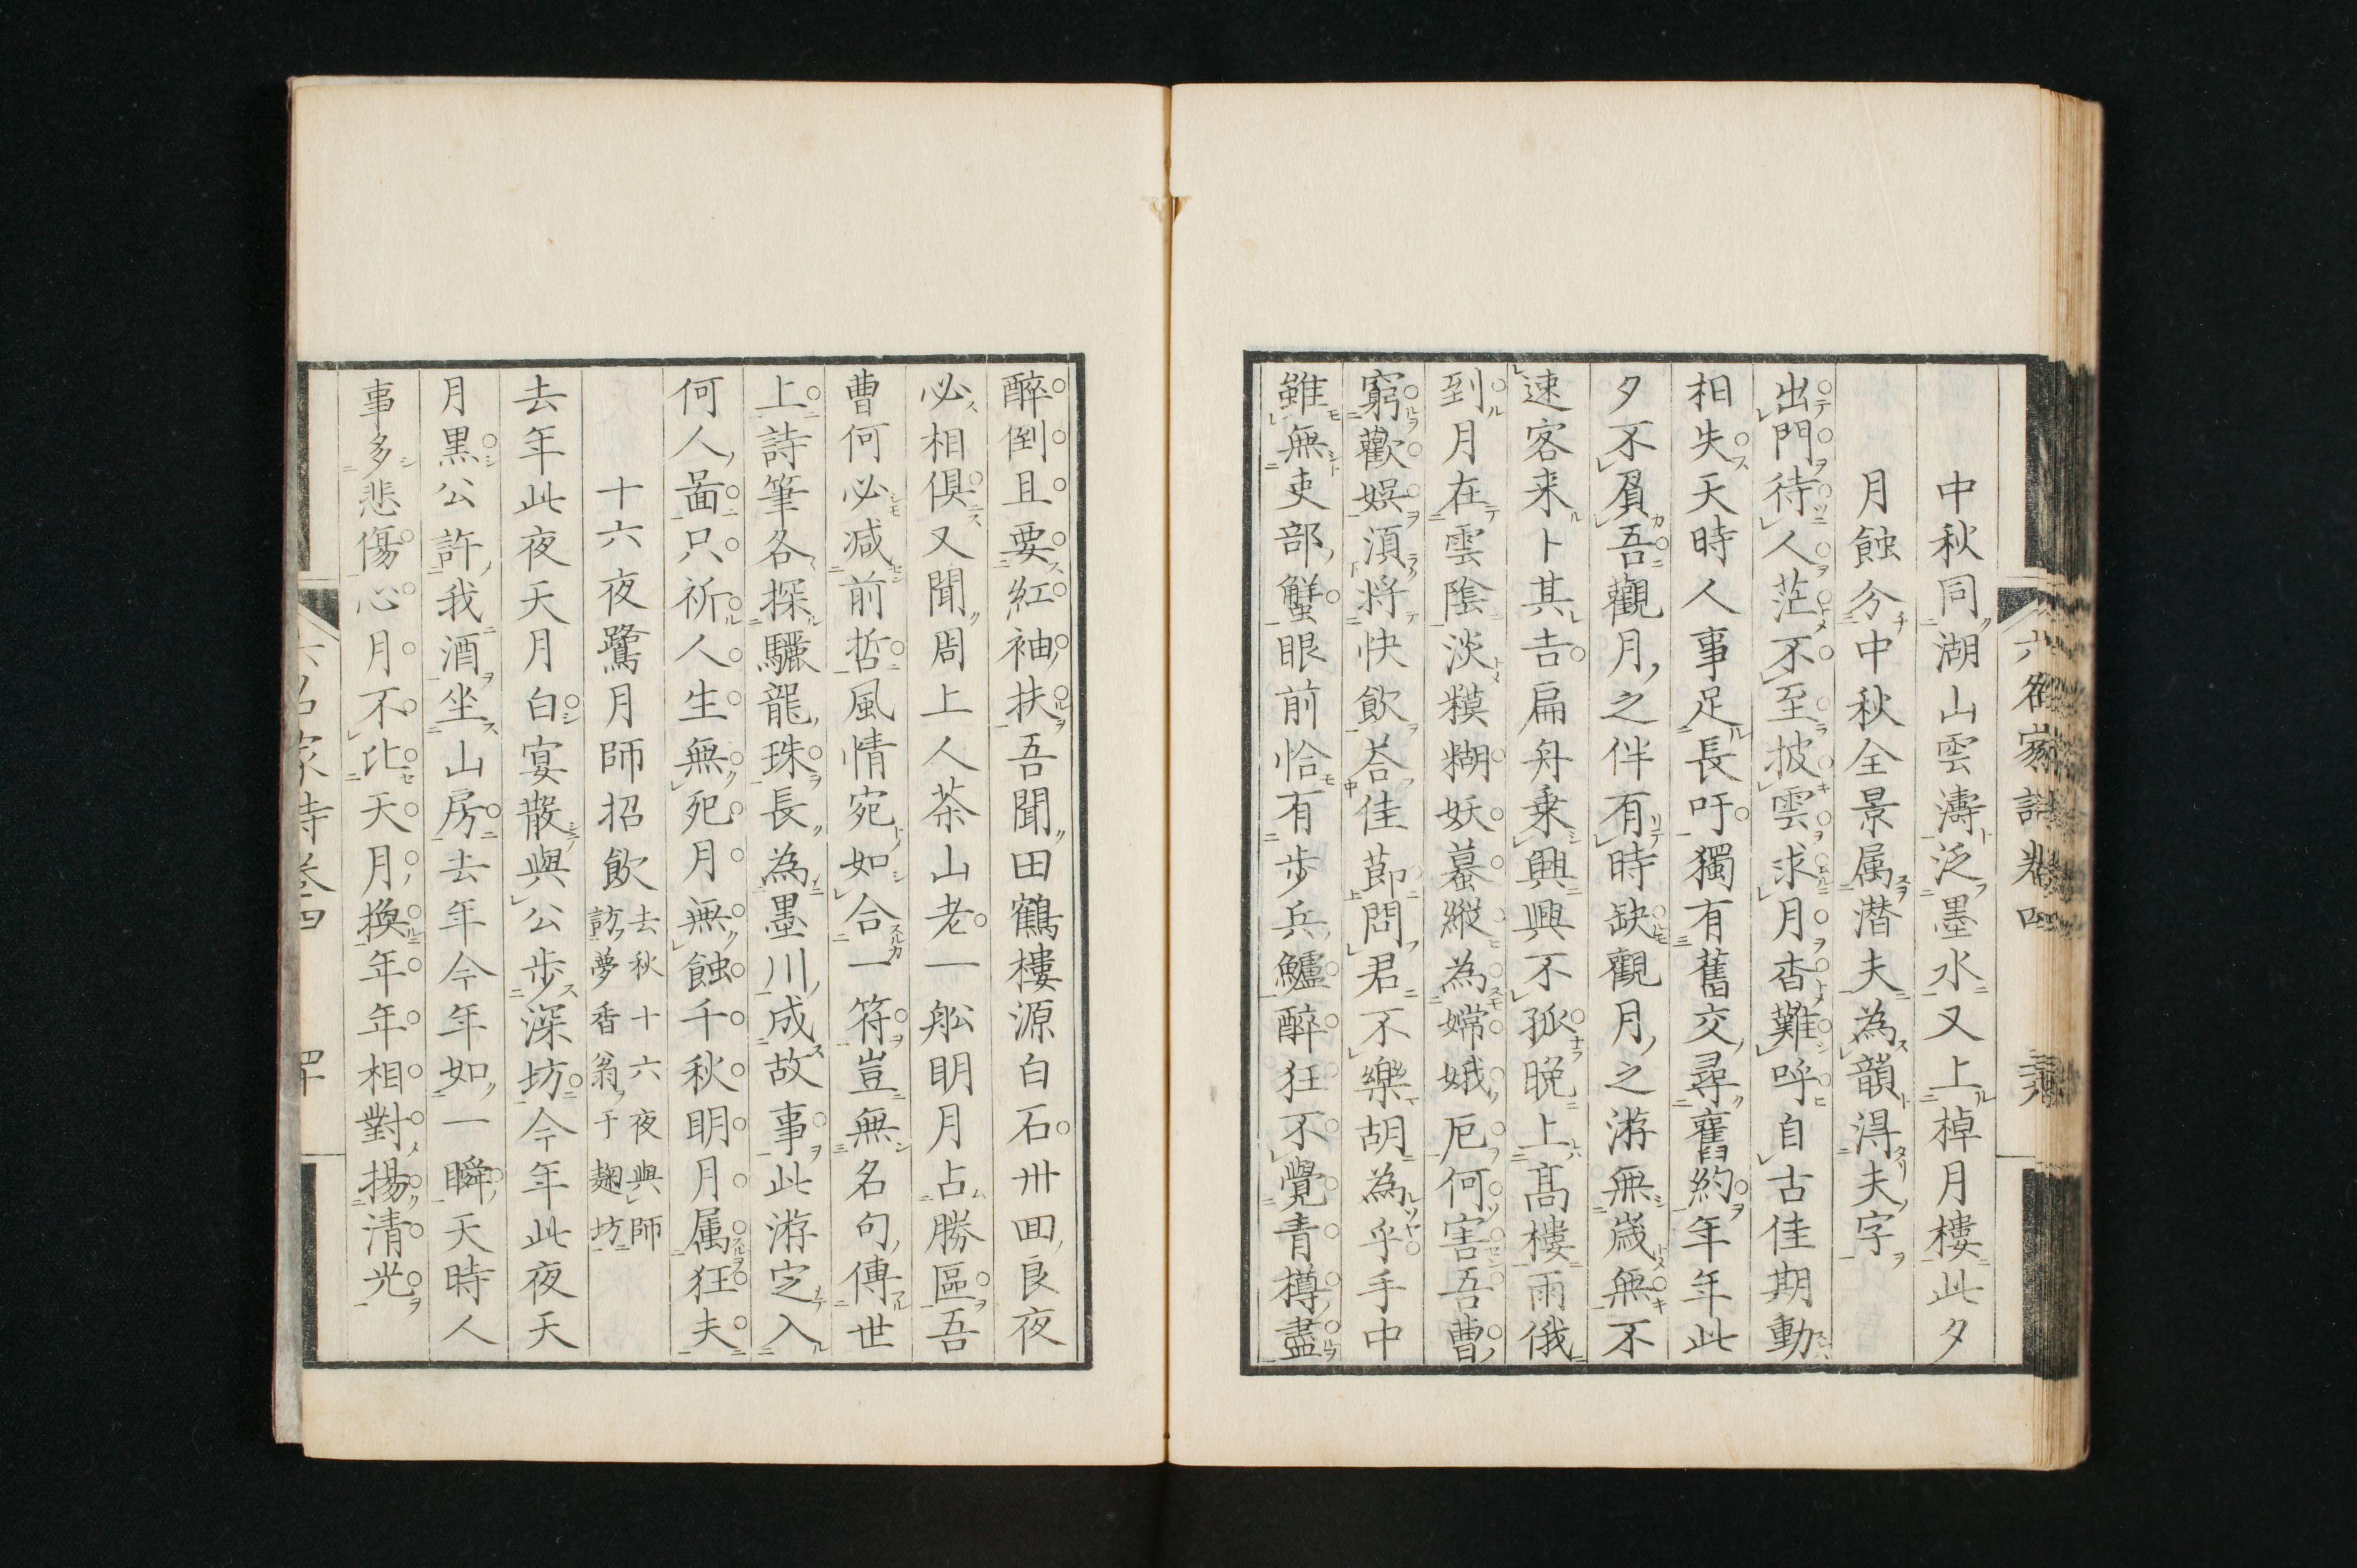 中秋同湖山雲濤泛墨水又上棹月樓此夕
月蝕分中秋全景属潜夫為韻得夫字
出門待人茫不至披雲求月杳難呼自古佳期動
相失天時人事足長吁獨有舊交尋舊約年年此
夕不負吾觀月之伴有時缺觀月之游無歳無不
速客来卜其吉扁舟乗興興不孤晚上髙樓雨俄
到月在雲陰淡糢糊妖蟇縱為嫦娥厄何害吾曹
窮歡娯湏將快飲荅佳莭問君不樂胡為乎手中
雖無吏部蟹眼前恰有歩兵鱸醉狂不覺青樽盡
醉倒且要紅袖扶吾聞田鶴樓源白石卅囬良夜
必相俱又聞周上人茶山老一舩明月占勝區吾
曹何必减前哲風情宛如合一符豈無名句傳世
上詩筆各探驪龍珠長為墨川成故事此游定入
何人啚只祈人生無死月無蝕千秋明月属狂夫
十六夜鷺月師招飲
去秋十六夜與師
訪夢香翁于麹坊
去年此夜天月白宴散與公歩深坊今年此夜天
月黒公許我酒坐山房去年今年如一瞬天時人
事多悲傷心月不比天月換年年相對揚清光
六名家詩卷四